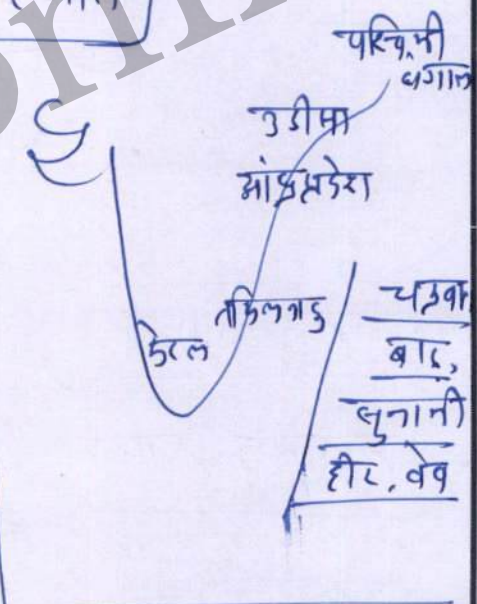 पश्चिमी
बंगाल
उडीसा
आंध्रप्रदेश
तमिलनाडु
केरल
चक्रवा
बाढ़,
सुनामी
हीट, वेव